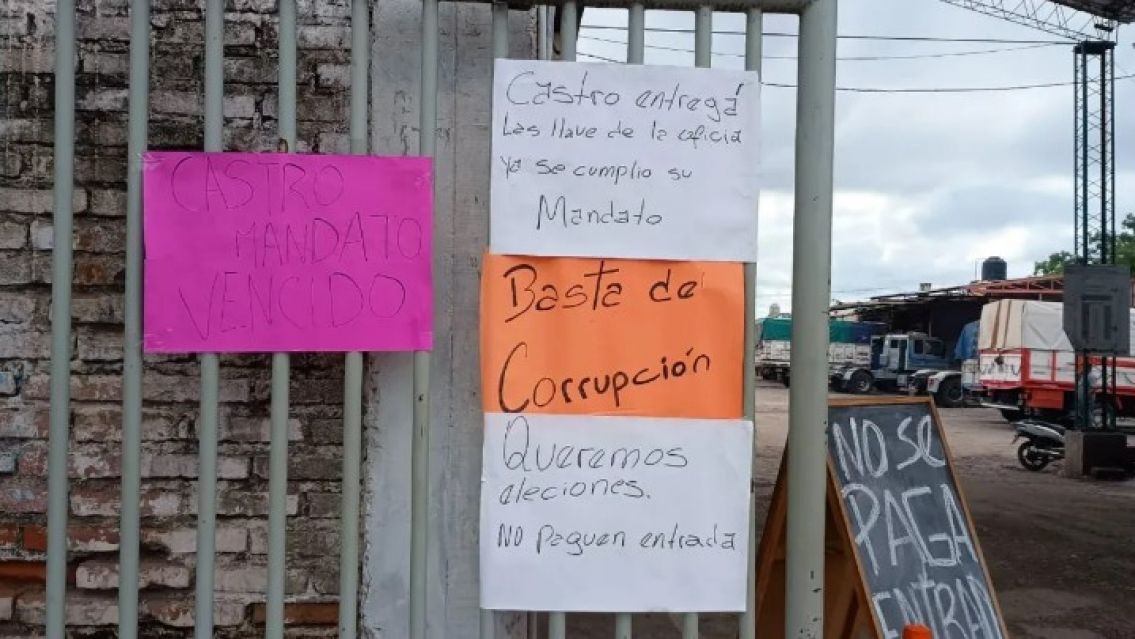 CASTRO
MANDATO
VENCIDO
Castro entregá
Las llave de la oficia
ya se cumplio su
Mandato
Basta de
Corrupción
Queremos
eleciones.
NO Paguen entrada
NO Se
PAGA
ENTRAD